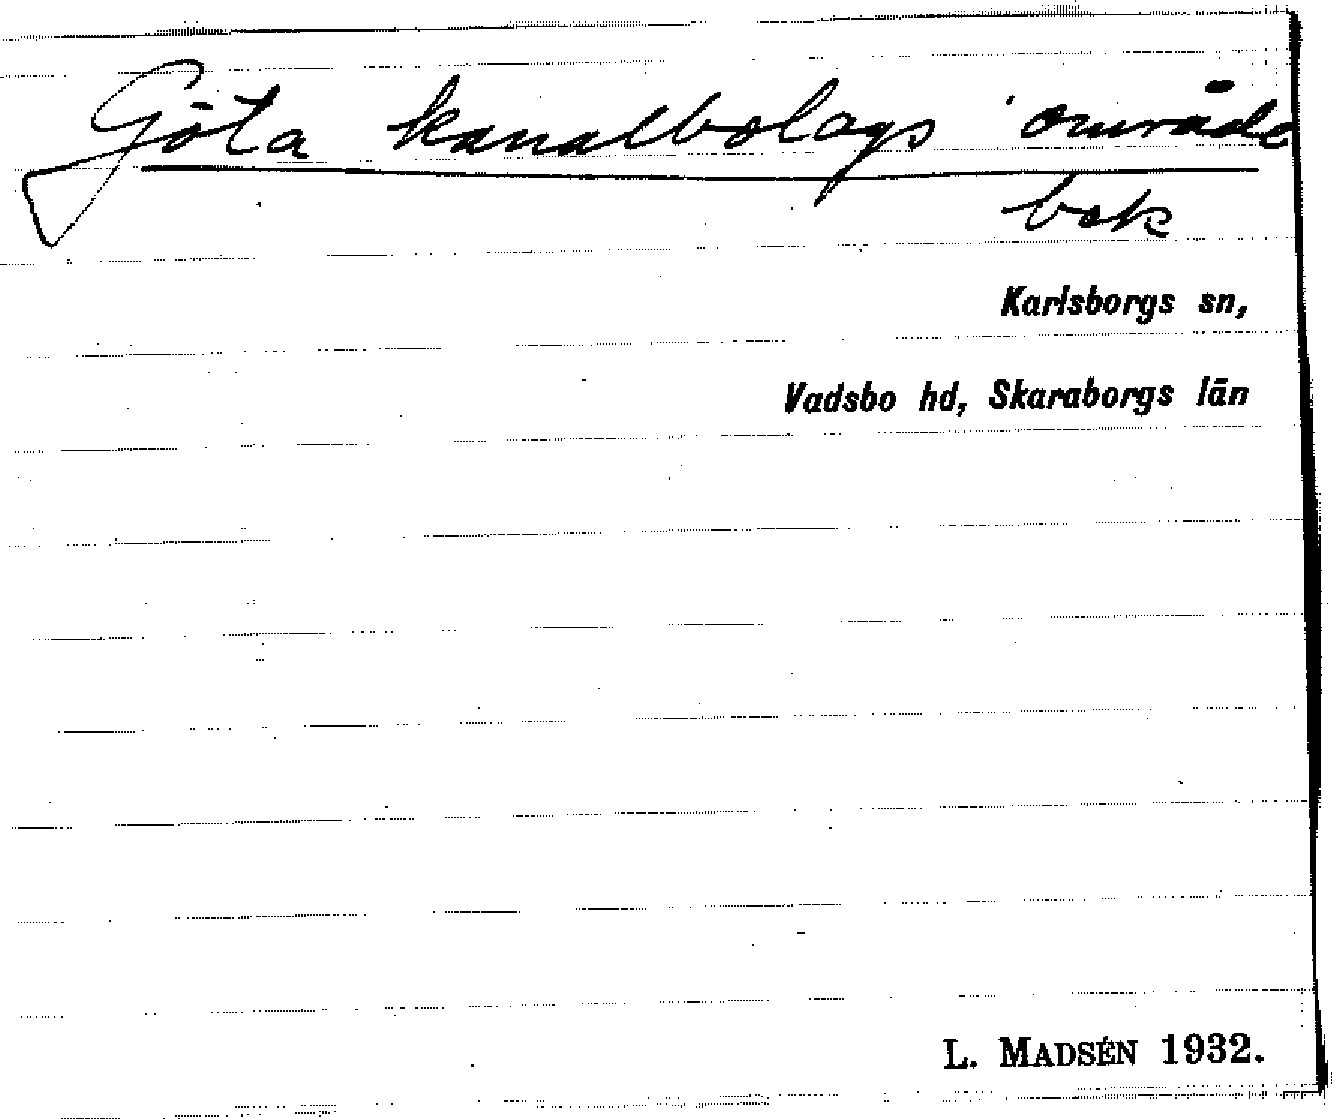 Göta kanalbolags område
bok
Karlsborgs sn,
Vadsbo hd, Skaraborgs län
L. MADSÉN 1932.